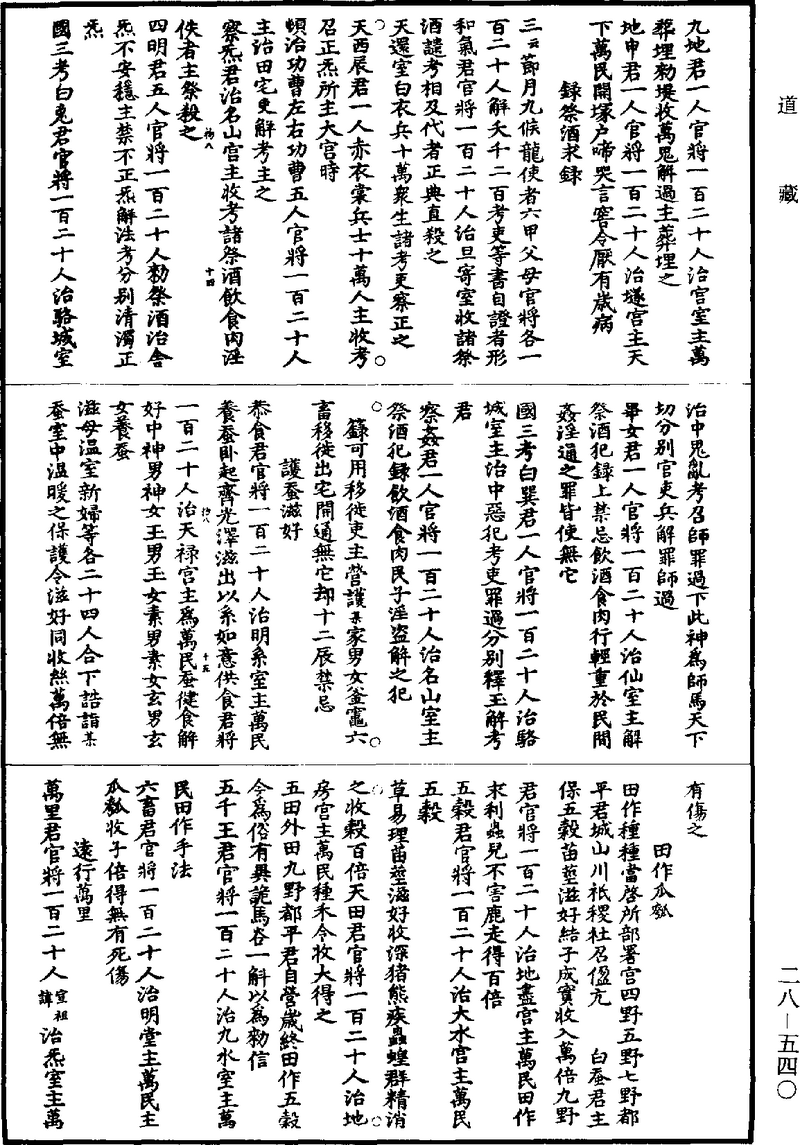 道藏
九地君一人官將一百二十人治宫室主萬
葬埋勑㙇收萬鬼解過主葬埋之
地申君一人官將一百二十人治墜宫主天
下萬民開塚户啼哭言害令厭有歲病
録祭酒求録
三云節月九候龍使者六甲父母官將各一
百二十人解夭千二百考吏等書自證者形
和氣君官將一百二十人治旦寄室收諸祭
酒譴考相及代者正典直殺之
天還室白衣兵十萬衆生諸考吏察正之
天西辰君一人赤衣裳兵士十萬人主收考
召正炁所主大宫時
頓治功曹左右功曹五人官將一百二十人
主治田宅吏解考主之
察炁君治名山宫主收考諸祭酒飲食肉淫
佚者主祭殺之
四明君五人官將一百二十人勑祭酒治舍
炁不安穩主禁不正炁解法考分别清濁正
炁
國三考白兎君官將一百二十人治駱城室
治中鬼亂考召師罪過下此神爲師馬天下
切分别官吏兵解罪師過
畢女君一人官將一百二十人治仙室主解
祭酒犯録上禁忌飲酒食肉行輕重於民間
姦淫通之罪皆使無它
國三考白巽君一人官將一百二十人治駱
城室主治中惡犯考吏罪過分别釋玉解考
君
察姦君一人官將一百二十人治名山室主
祭酒犯録飲酒食肉民子淫盗解之犯
籙可用移徙吏主營護某家男女釜竈六
畜移徙出宅開通無它却十二辰禁忌
護蚕滋好
恭食君官將一百二十人治明糸室主萬民
養蚕卧起齊光澤滋出以糸如意供食君將
一百二十人治天禄宫主爲萬民蚕健食解
好中神男神女王男王女素男素女玄男玄
女養蚕
滋母温室新婦等各二十四人合下詣詣某
蚕室中温暖之保護令滋好同收絲萬倍無
有傷之
田作瓜瓠
田作種種當啓所部署宫四野五野七野都
平君城山川祇稷社召偘亢　白蚕君主
保五穀苗莖滋好結子成實收入萬倍九野
君官將一百二十人治地盡宫主萬民田作
求利蟲兒不害鹿走得百倍
五穀君官將一百二十人治大水宫主萬民
五穀
草易理苗莖滋好收深猪熊疾蟲蝗群精消
之收穀百倍天田君官將一百二十人治地
房宫主萬民種禾令收大得之
五田外田九野都平君自營歲終田作五穀
令爲俗有異詭馬谷一斛以爲勑信
五千王君官將一百二十人治九水室主萬
民田作手法
六畜君官將一百二十人治明堂主萬民主
瓜瓠收子倍得無有死傷
遠行萬里
萬里君官將一百二十人宣祖諱治炁室主萬
二八—五四〇